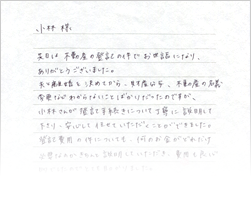 小林 様
先日は 不動産の登記の件で お世話になり、
ありがとうございました。
夫と離婚を決めてから、財産分与、不動産の名義
変更などわからないことばかりだったのですが、
小林さんが 登記手続きについて丁寧に説明して
下さり、安心して任せていただくことができました。
登記費用の件についても、何のお金がどれだけ
説明して いただき、費用も